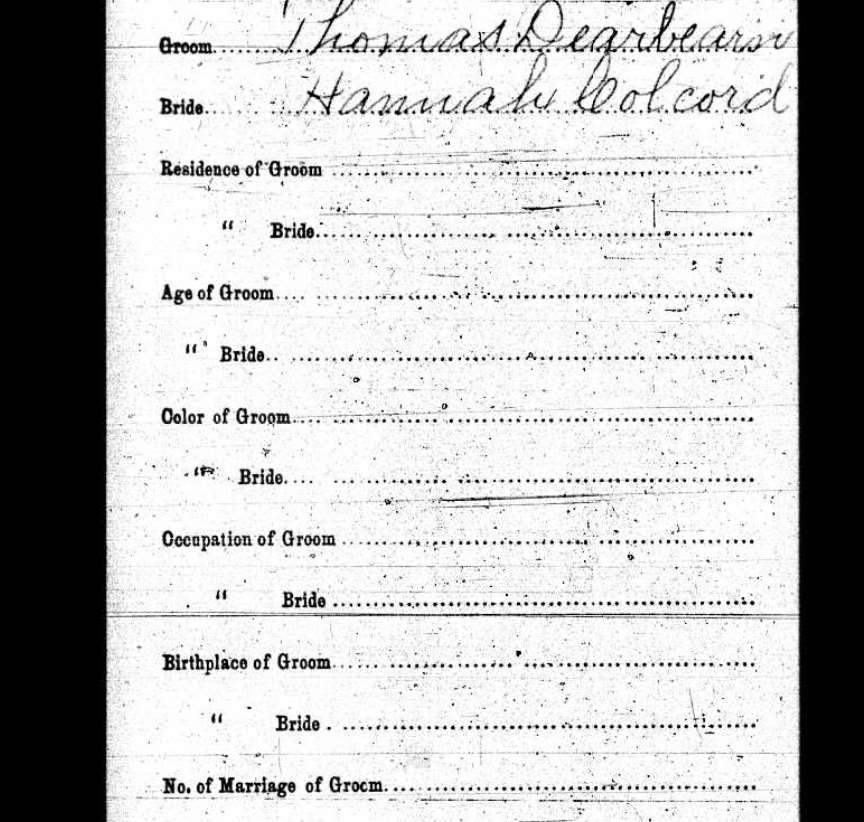 Groom Thomas Dearbearn
Bride Hannah Colcord
Residence of Groom
" Bride
Age of Groom
" Bride
Color of Groom
" Bride
Occupation of Groom
" Bride
Birthplace of Groom
" Bride
No. of Marriage of Groom